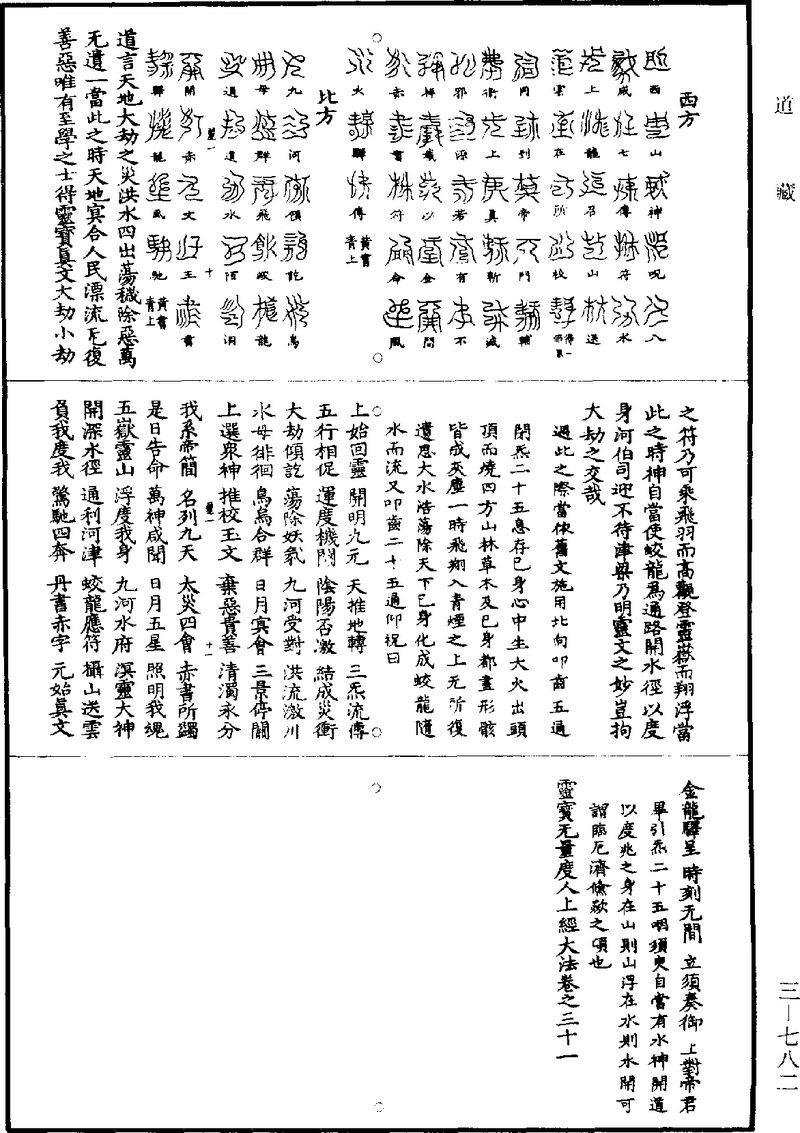 道藏
三—七八二
西方
西山神呪八
威七傳符水
上龍召山送
雲在所校
罔到帝門輔
衛上真斬滅
邪源若有不
祥截以金關
赤書符命風
火驛傳黃書青上
北方
九河傾訖鳥
母群飛蛟龍
通道水陌洞
開赤文玉書
驛龍風馳黃書青上
道言天地大劫之災洪水四出蕩穢除惡萬
无遺一當此之時天地冥合人民漂流无復
善惡唯有至學之士得靈寶真文大劫小劫
之符乃可乘飛羽而高觀登靈嶽而翔浮當
此之時神自當使蛟龍為通路開水徑以度
身河伯司迎不待津梁乃明靈文之妙豈拘
大劫之交哉
遇此之際當依舊文施用北向叩齒五通
閉炁二十五息存己身心中生大火出頭
頂而燒四方山林草木及己身都盡形骸
皆成灰塵一時飛翔入青煙之上无所復
遺思大水浩蕩除天下己身化成蛟龍隨
水而流又叩齒二十五通仰祝曰
上始回靈 開明九元 天推地轉 三炁流傳
五行相促 運度機關 陰陽否激 結成災衝
大劫傾訖 蕩除妖氛 九河受對 洪流激川
水母徘徊 鳥烏合群 日月冥會 三景停關
上選眾神 推校玉文 棄惡貴善 清濁永分
我系帝簡 名列九天 太災四會 赤書所蠲
是日告命 萬神咸聞 日月五星 照明我魂
五嶽靈山 浮度我身 九河水府 溟靈大神
開深水徑 通利河津 蛟龍應符 攝山送雲
負我度我 驚馳四奔 丹書赤字 元始真文
金龍驛呈 時刻无間 立須奏御 上對帝君
畢引炁二十五咽須臾自當有水神開道
以度兆之身在山則山浮在水則水開可
謂臨厄濟儉歘之頃也
靈寶无量度人上經大法卷之三十一